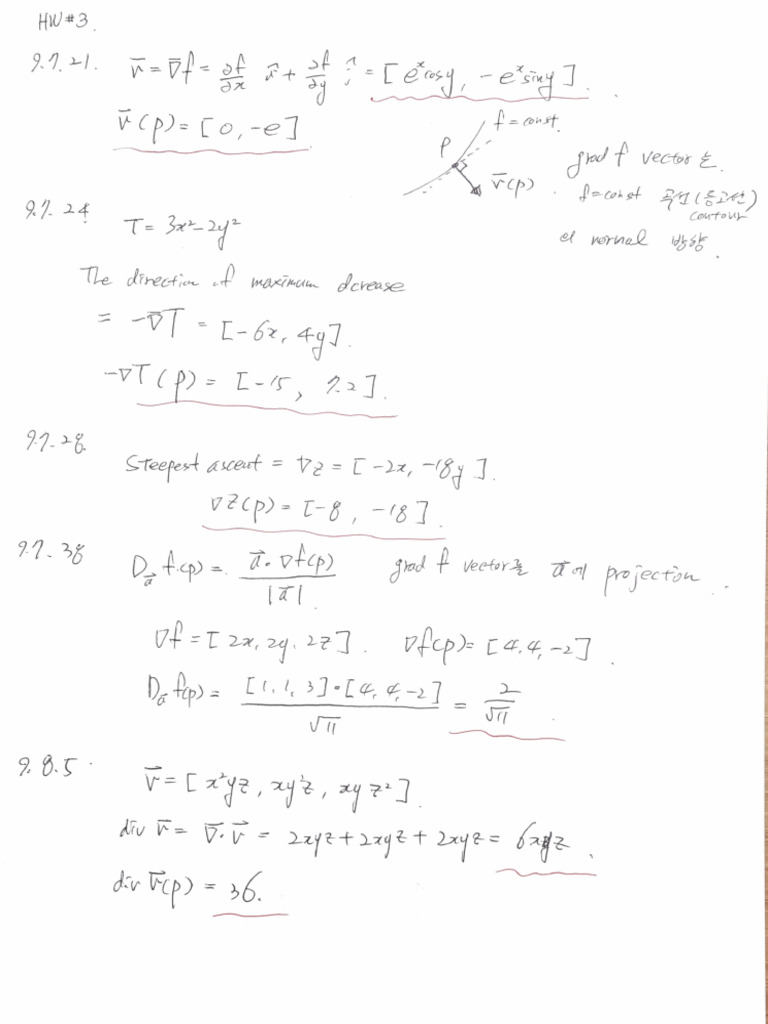 HW#3.
9.7.21. v̄ = ∇̄f = ∂f/∂x î + ∂f/∂y ĵ = [eˣcosy, -eˣsiny].
v̄(p) = [0, -e]
P
f = const.
v̄(p)
grad f vector는.
f=const 곡선(등고선)
contour
의 normal 방향.
9.7.24. T = 3x²-2y²
The direction of maximum dcrease
= -∇̄T = [-6x, 4y].
-∇T(p) = [-15, 7.2].
9.7.28. Steepest ascent = ∇z = [-2x, -18y].
∇z(p) = [-8, -18].
9.7.38 D_a̅ f(p) = a̅·∇f(p) / |a̅| grad f vector를 a̅에 projection
∇f = [2x, 2y, 2z]. ∇f(p) = [4, 4, -2].
D_a̅ f(p) = [1, 1, 3]·[4, 4, -2] / √11 = 2/√11
9.8.5. v̄ = [x²yz, xy²z, xyz²].
div v̄ = ∇̄·v̄ = 2xyz+2xyz+2xyz = 6xyz.
div v̄(p) = 36.